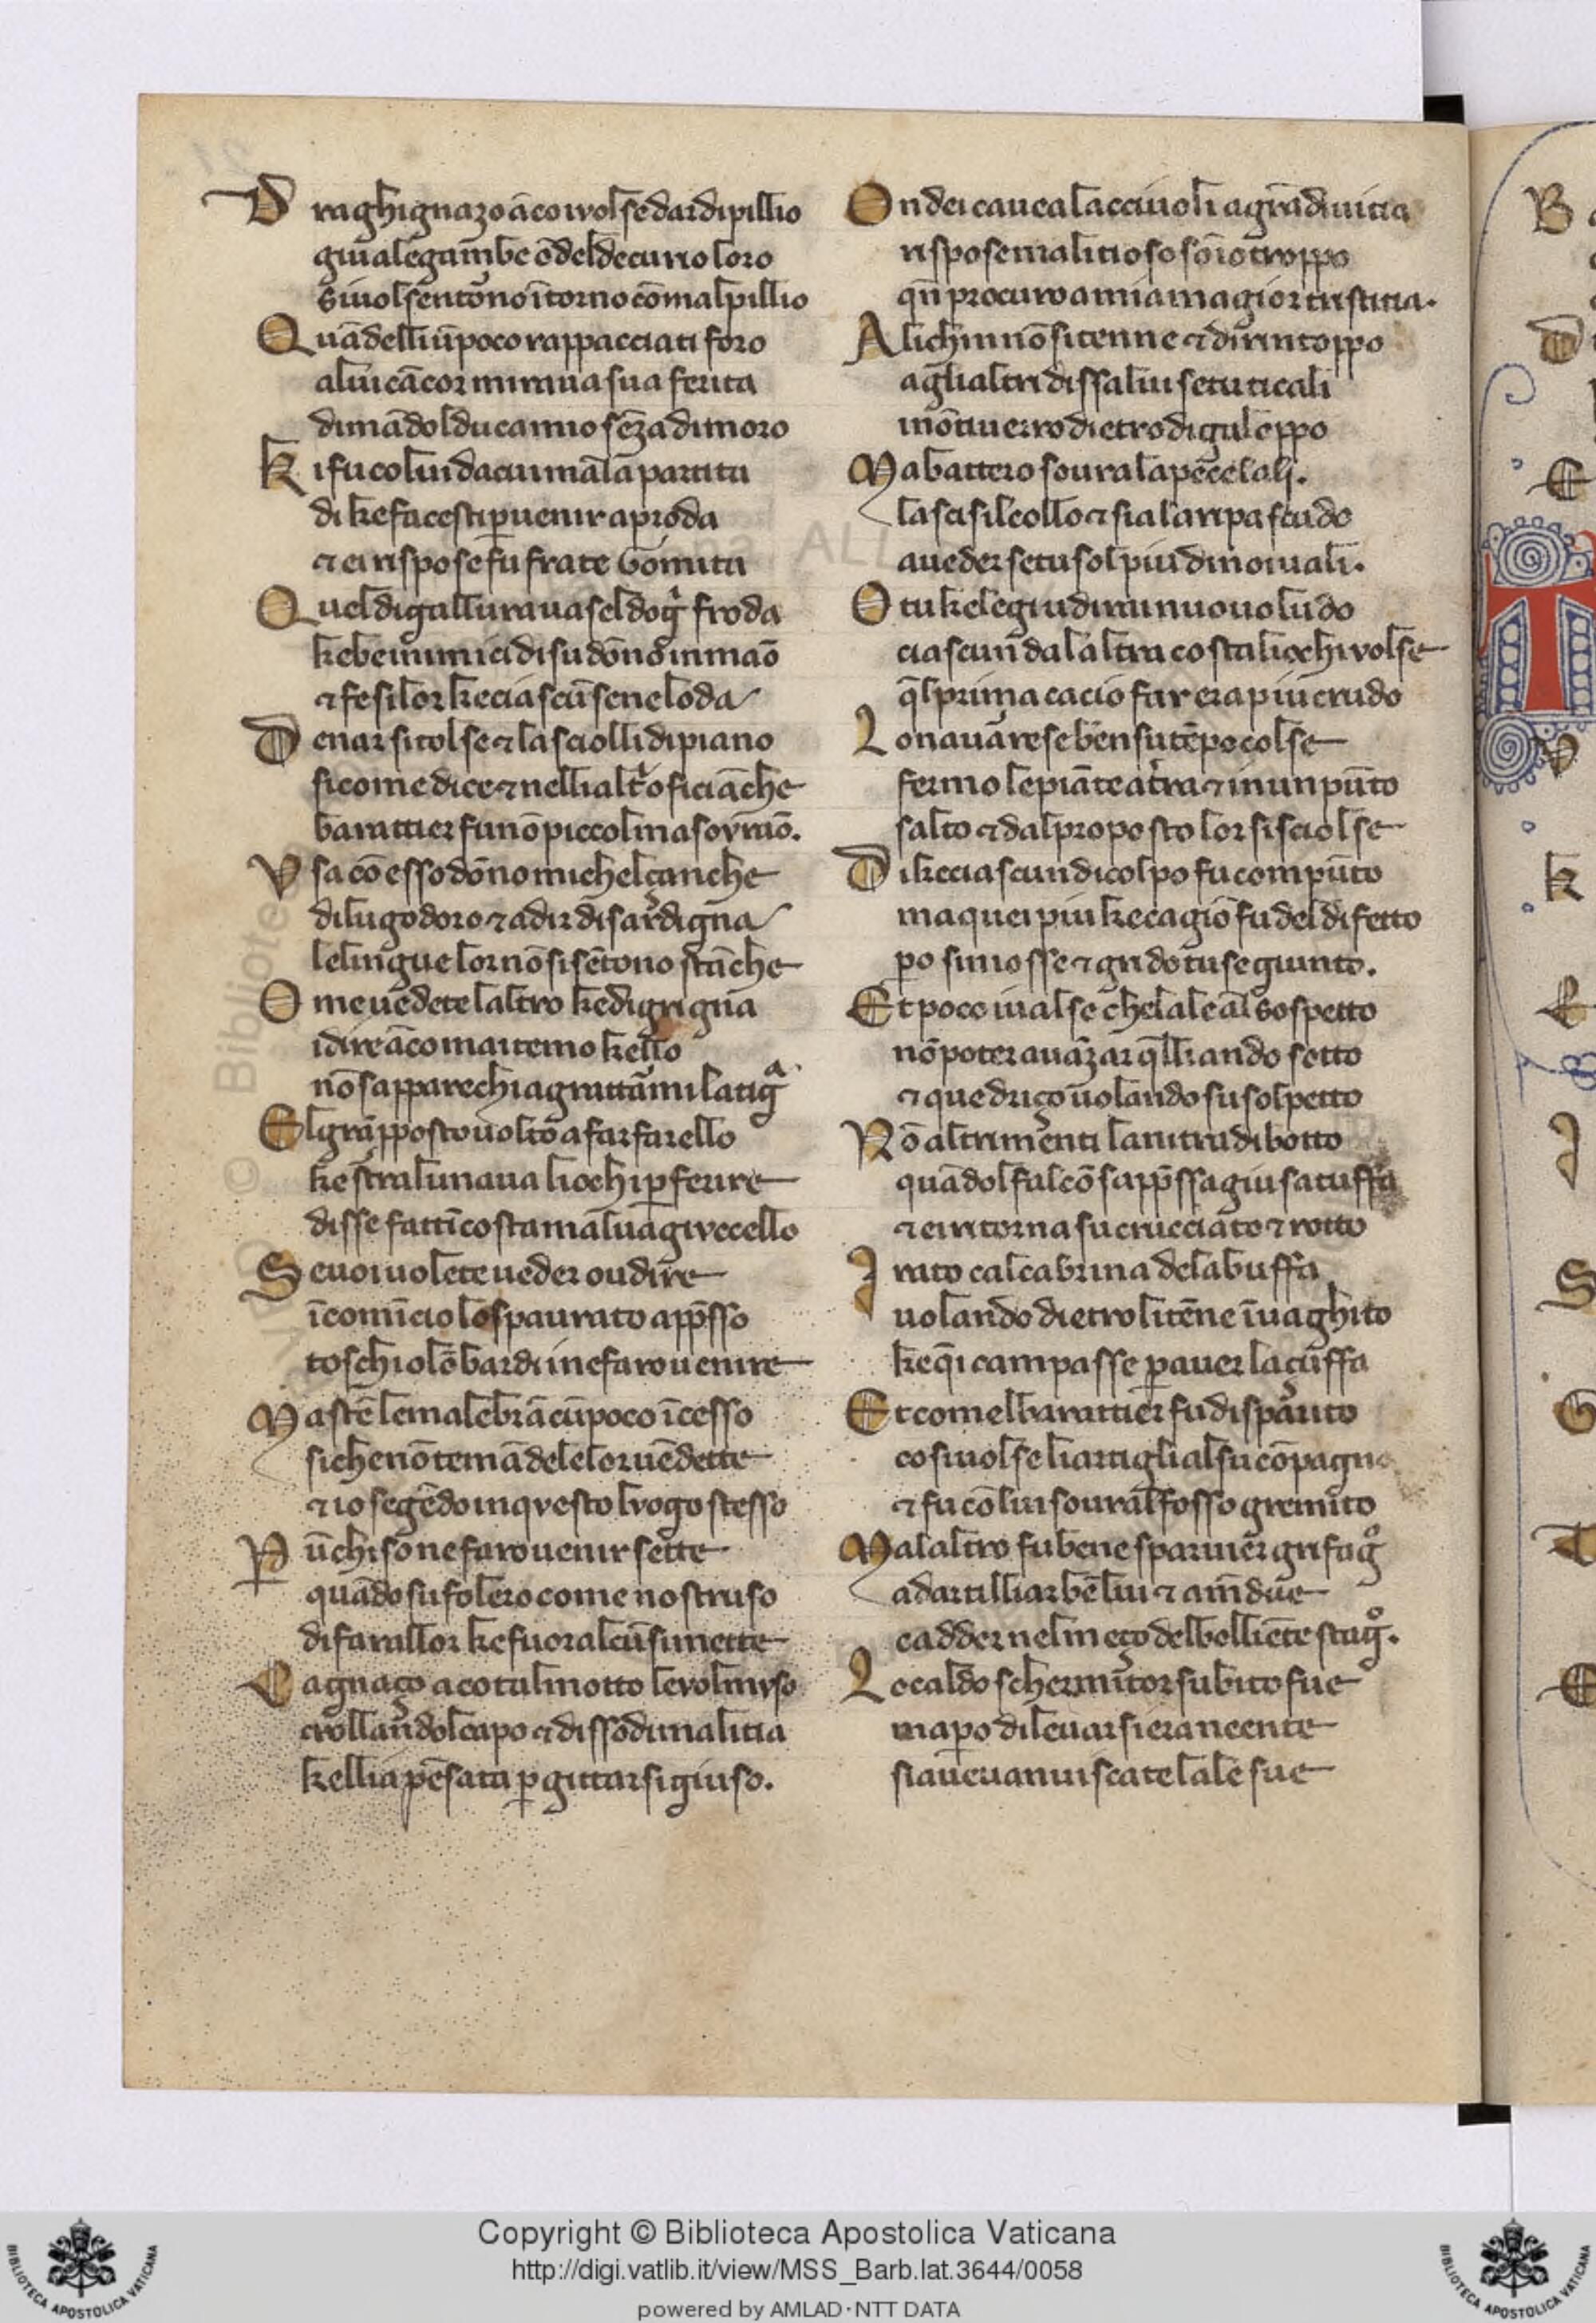 Draghignazo āco i volse dar di pillio
giu a le gambe ōdel decurio loro
si volse ntōno ītorno cō mal pillio
Quādelli ūpoco rappacciati foro
a lui cācor mirava sua ferita
dimādol duca mio sēza dimoro
Ki fu colui da cui mala partita
di ke facesti p̱ venir a proda
⁊ ei rispose fu frate Gomita
Quel di gallura vasel dog̅ froda
kebe inimici di su dōno in māo
⁊ fe si lor ke ciascū se ne loda
Denar si tolse ⁊ lasciolli di piano
si come dice ⁊ nelli altͥ oficiāche
barattier fu nō piccol ma sovrāo.
Usa cō esso dōno michel çanche
di lugodoro ⁊ a dir di sardigna
le lingue lor nō si sētono stāche
Ome vedete laltro ke digrigna
i dire āco ma i temo kello
nō sapparechi a grattāmi la tigͣ
El grā pposto volto a farfarello
ke stralunava li ochi p̱ ferire
disse fattī costa malvagi vccello
Se voi volete veder o udire
īcomīcio lo spaurato appͤsso
toschi o lōbardi i ne faro venire
Ma stē le malebrāc ūpoco īcesso
si che nō temā de le lor vēdette
⁊ io segēdo in qvesto lvogo stesso
P̱ ūchi so ne faro venir sette
quādo sufolero come nostruso
di fare allor ke fuor alcū si mette
Cagnaço a cotal motto levol mvso
crollandol capo ⁊ disse odi malitia
kelli a pēsata p̱ gittarsi giuso.
Ondei cavea lacciuoli a grā divitia
rispose malitioso sō io troppo
qn̄ procuro a mia magior tristitia.
Alichin nō si tenne ⁊ di rintoppo
a gli altri disse a lui se tu ti cali
i nō ti verro dietro di galoppo
Ma battero sovra la pece lali.
lascisil collo ⁊ sia la ripa scudo
a veder se tu sol piu di noi vali.
O tu ke legi udirai nuovo ludo
ciascun da laltra costa li ochi volse
q̄l prima ca cio far era piu crudo
Lo navarese ben su tēpo colse
fermo le piāte a tͬra ⁊ in un pūto
salto ⁊ dal proposto lor si sciolse
Di ke ciascun di colpo fu compūto
ma quei piu ke cagiō fu del difetto
p̱o si mosse ⁊ grido tu se giunto.
Et poco i valse che lale al sospetto
nō poter avāzar q̄lli ando sotto
⁊ que driço volando su sol petto
Nō altrimenti lanitra di botto
quādol falcō sappͤssa giu satuffa
⁊ ei ritorna su crucciato ⁊ rotto
Irato calcabrina de la buffa
volando dietro li tēne īvaghito
ke q̄i campasse p̱ aver la çuffa
Et comel barattier fu disparito
cosi volse li artigli al su cōpagno
⁊ fu cō lui sovral fosso gremito
Ma laltro fu bene sparvier grifagͦ
ad artilliar bē lui ⁊ amēdue
cadder nel meço del bolliēte stagͦ.
Lo caldo schermitor subito fue
ma p̱o di levarsi era neente
si aveva inviscate lale sue
Copyright © Biblioteca Apostolica Vaticana
http://digi.vatlib.it/view/MSS_Barb.lat.3644/0058
powered by AMLAD·NTT DATA